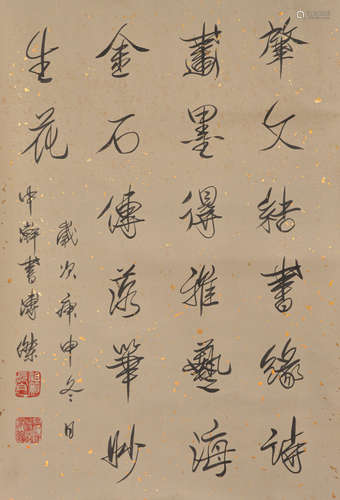 肇文結書緣詩
畫墨得雅藝海
金石傳落筆妙
生花
歲次庚申冬日
中瀚書溥傑